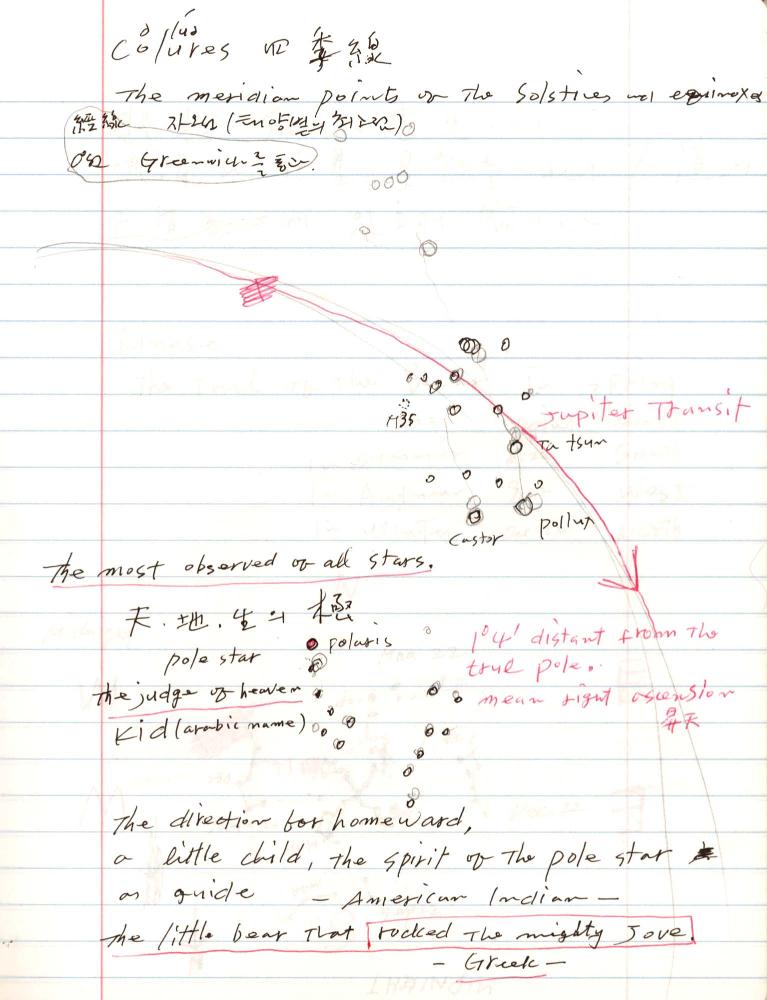 Colures 四季線
The meridian points or the Solstices and equinoxes
經線 자오선 (태양별의 최고점)
0인 Greenwich를 통과.
M35
Jupiter Transit
Ta tsun
Castor
pollux
The most observed of all stars.
天.地.生의 極
pole star
polaris
the judge of heaven
Kid (arabic name)
1°4' distant from the
true pole.
mean right ascension
昇天
The direction for homeward,
a little child, the spirit of the pole star
as guide — American Indian —
the little bear that rocked the mighty Jove.
— Greek —